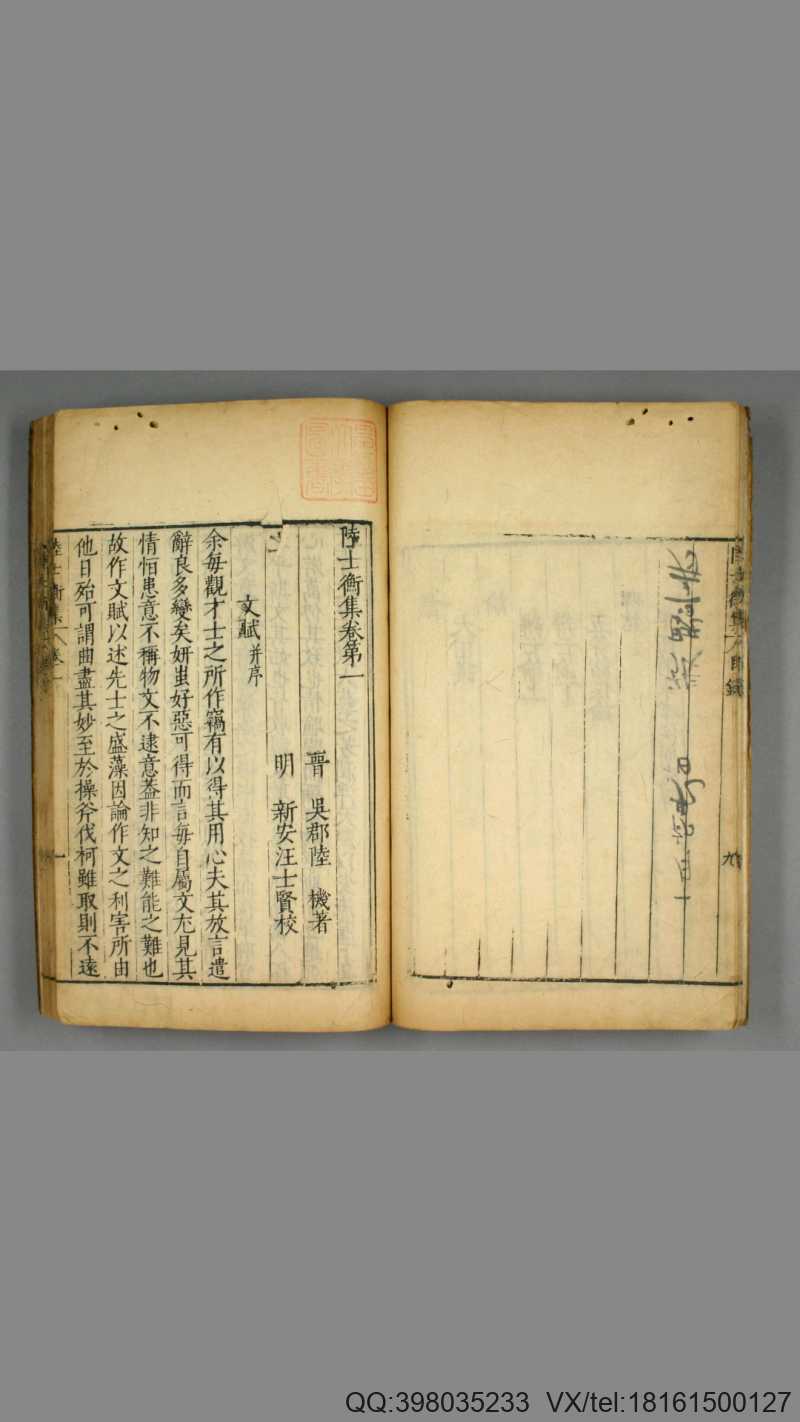 陸士衡集卷第一
晉 吳郡陸 機著
明 新安汪士賢校
文賦并序
余每觀才士之所作竊有以得其用心夫其放言遣
辭良多變矣妍蚩好惡可得而言每自屬文尤見其
情恒患意不稱物文不逮意蓋非知之難能之難也
故作文賦以述先士之盛藻因論作文之利害所由
他日殆可謂曲盡其妙至於操斧伐柯雖取則不遠
陸士衡集 卷一 一
QQ:398035233 VX/tel:18161500127